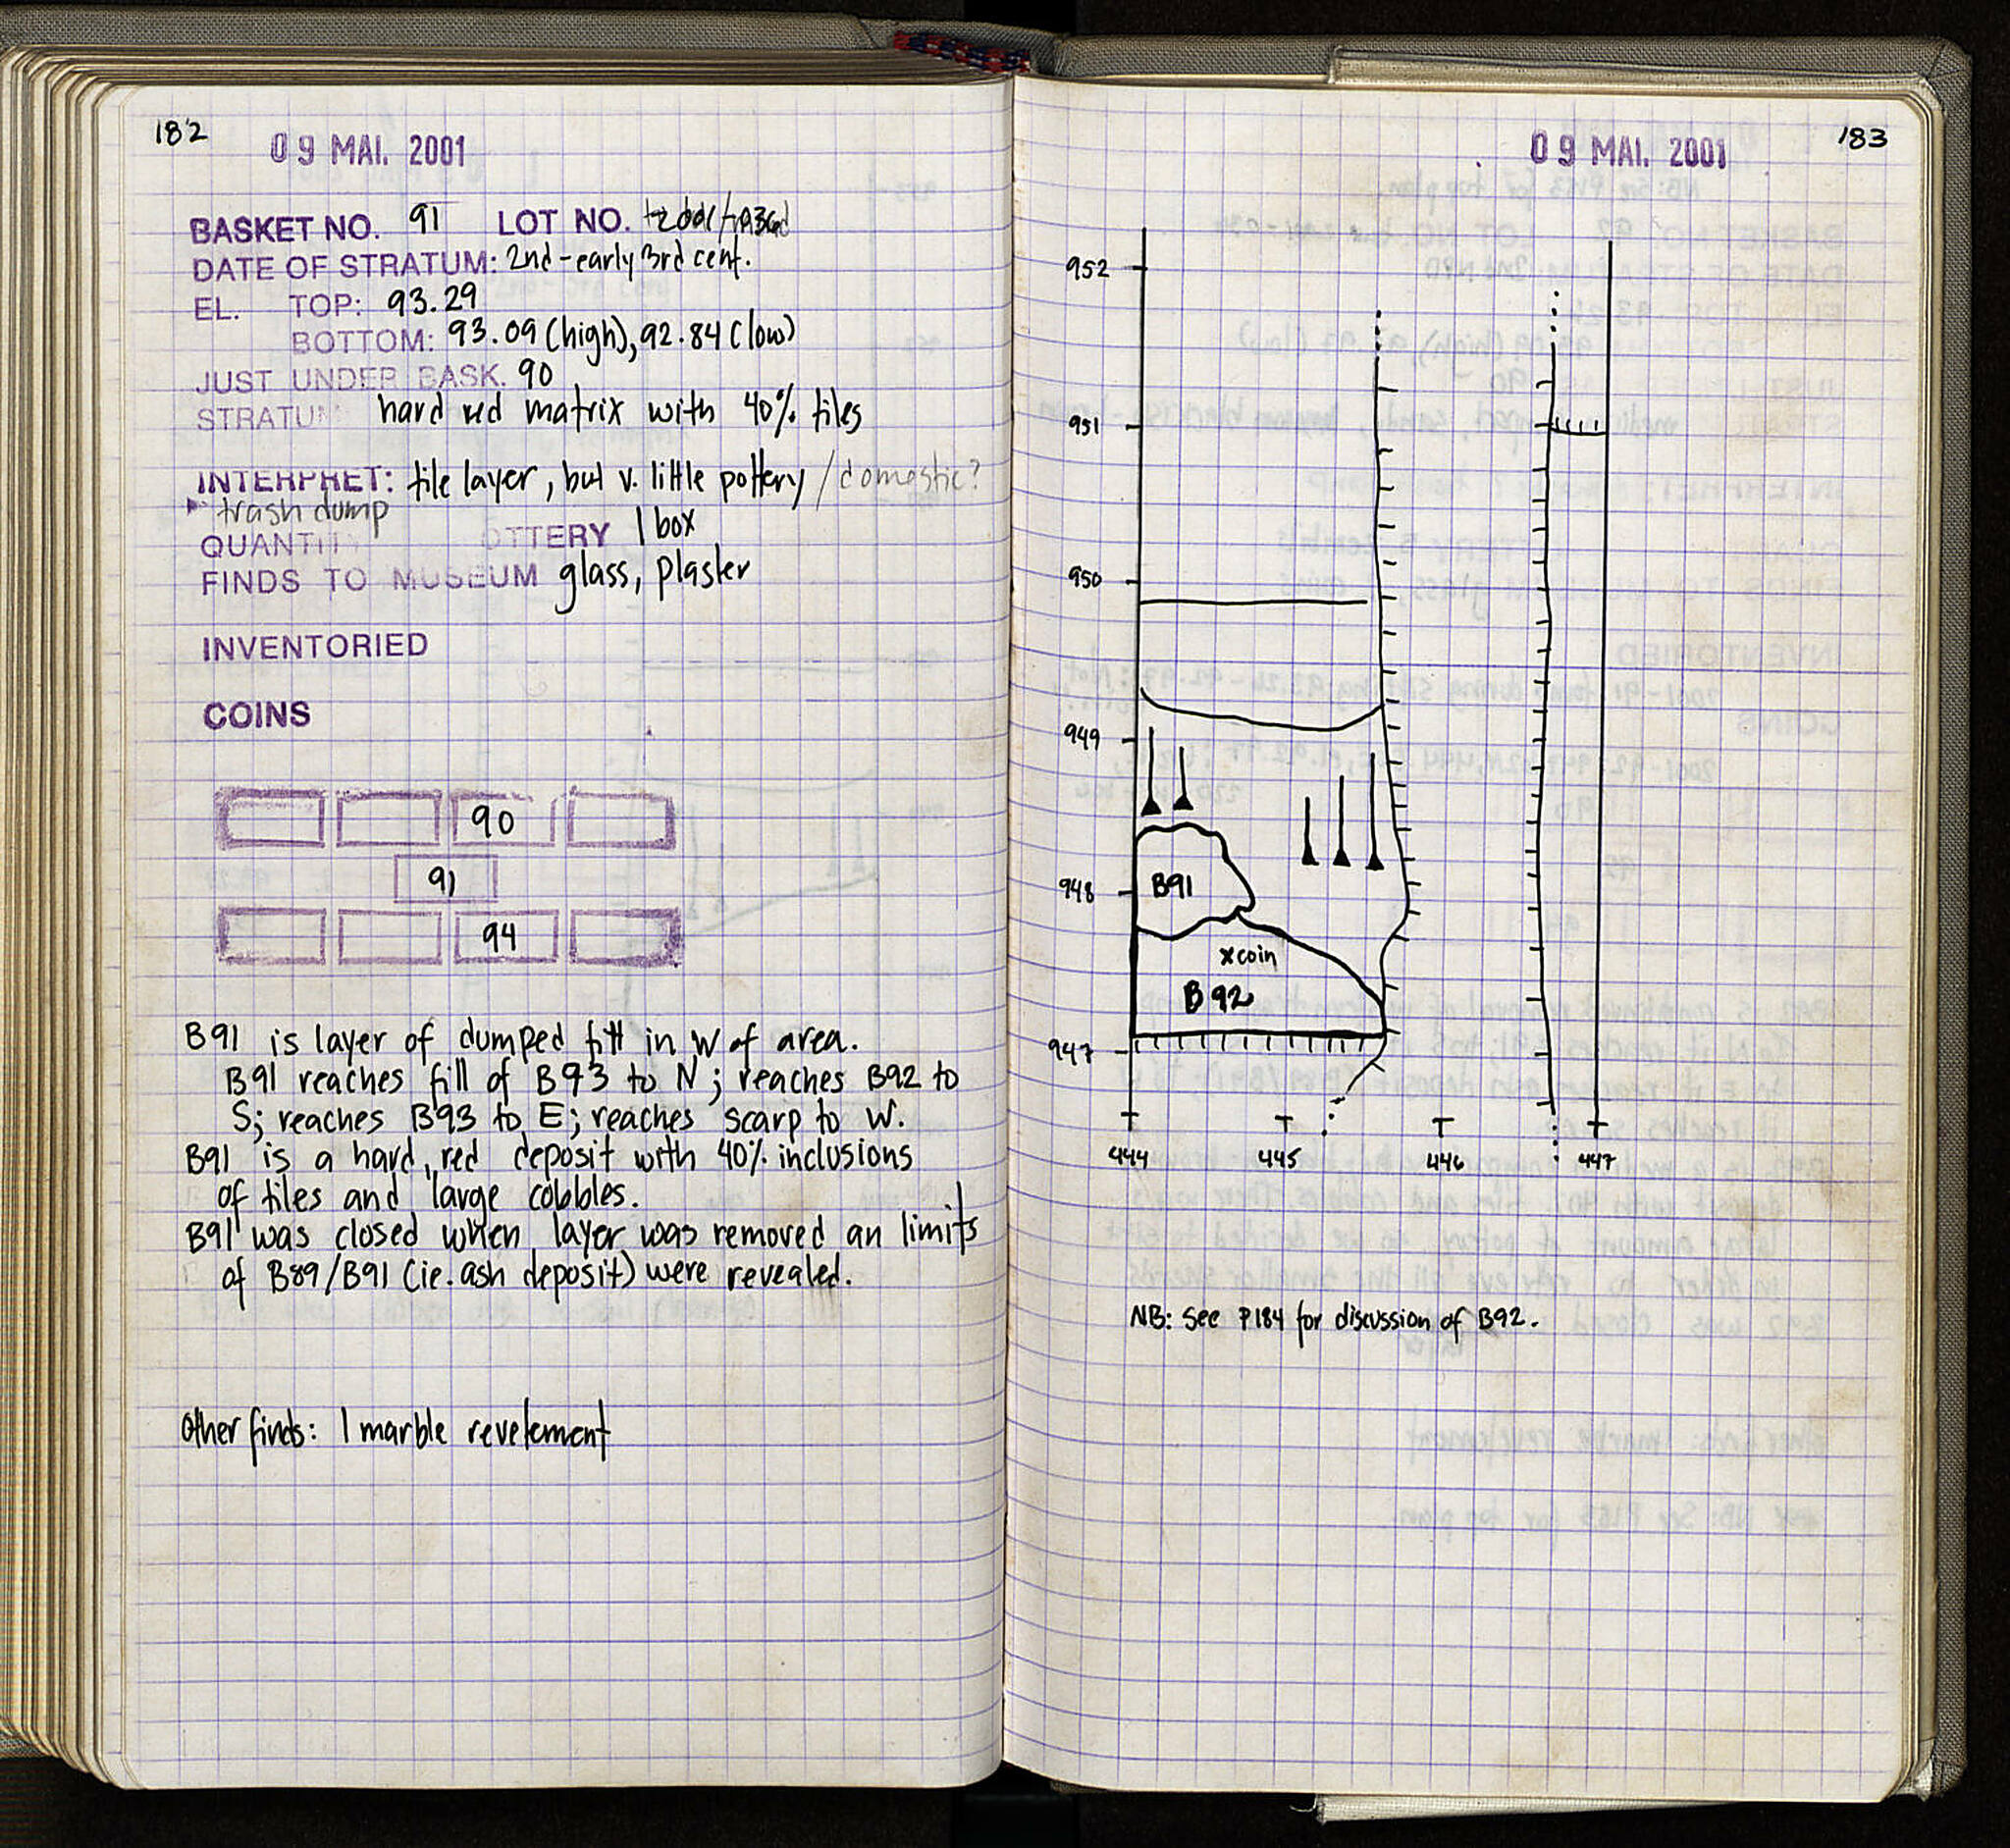 182
09 MAI. 2001
BASKET NO. 91 LOT NO.
DATE OF STRATUM: 2nd-early 3rd cent.
EL. TOP: 93.29
BOTTOM: 93.09 (high), 92.84 (low)
JUST UNDER BASK. 90
STRATUM hard red matrix with 40% tiles
INTERPRET: tile layer, but v. little pottery / domestic?
trash dump
QUANTITY OTTERY 1 box
FINDS TO MUSEUM glass, plaster
INVENTORIED
COINS
90
91
94
B91 is layer of dumped fill in W of area.
B91 reaches fill of B93 to N; reaches B92 to
S; reaches B93 to E; reaches scarp to W.
B91 is a hard, red deposit with 40% inclusions
of tiles and large cobbles.
B91 was closed when layer was removed an limits
of B89/B91 (ie. ash deposit) were revealed.
Other finds: 1 marble revetement
09 MAI. 2001
183
952
951
950
949
948
947
B91
xcoin
B92
444 445 446 447
NB: See P184 for discussion of B92.